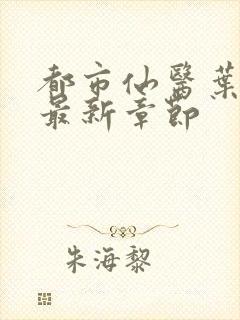 都市仙醫葉
最新章節
朱海黎